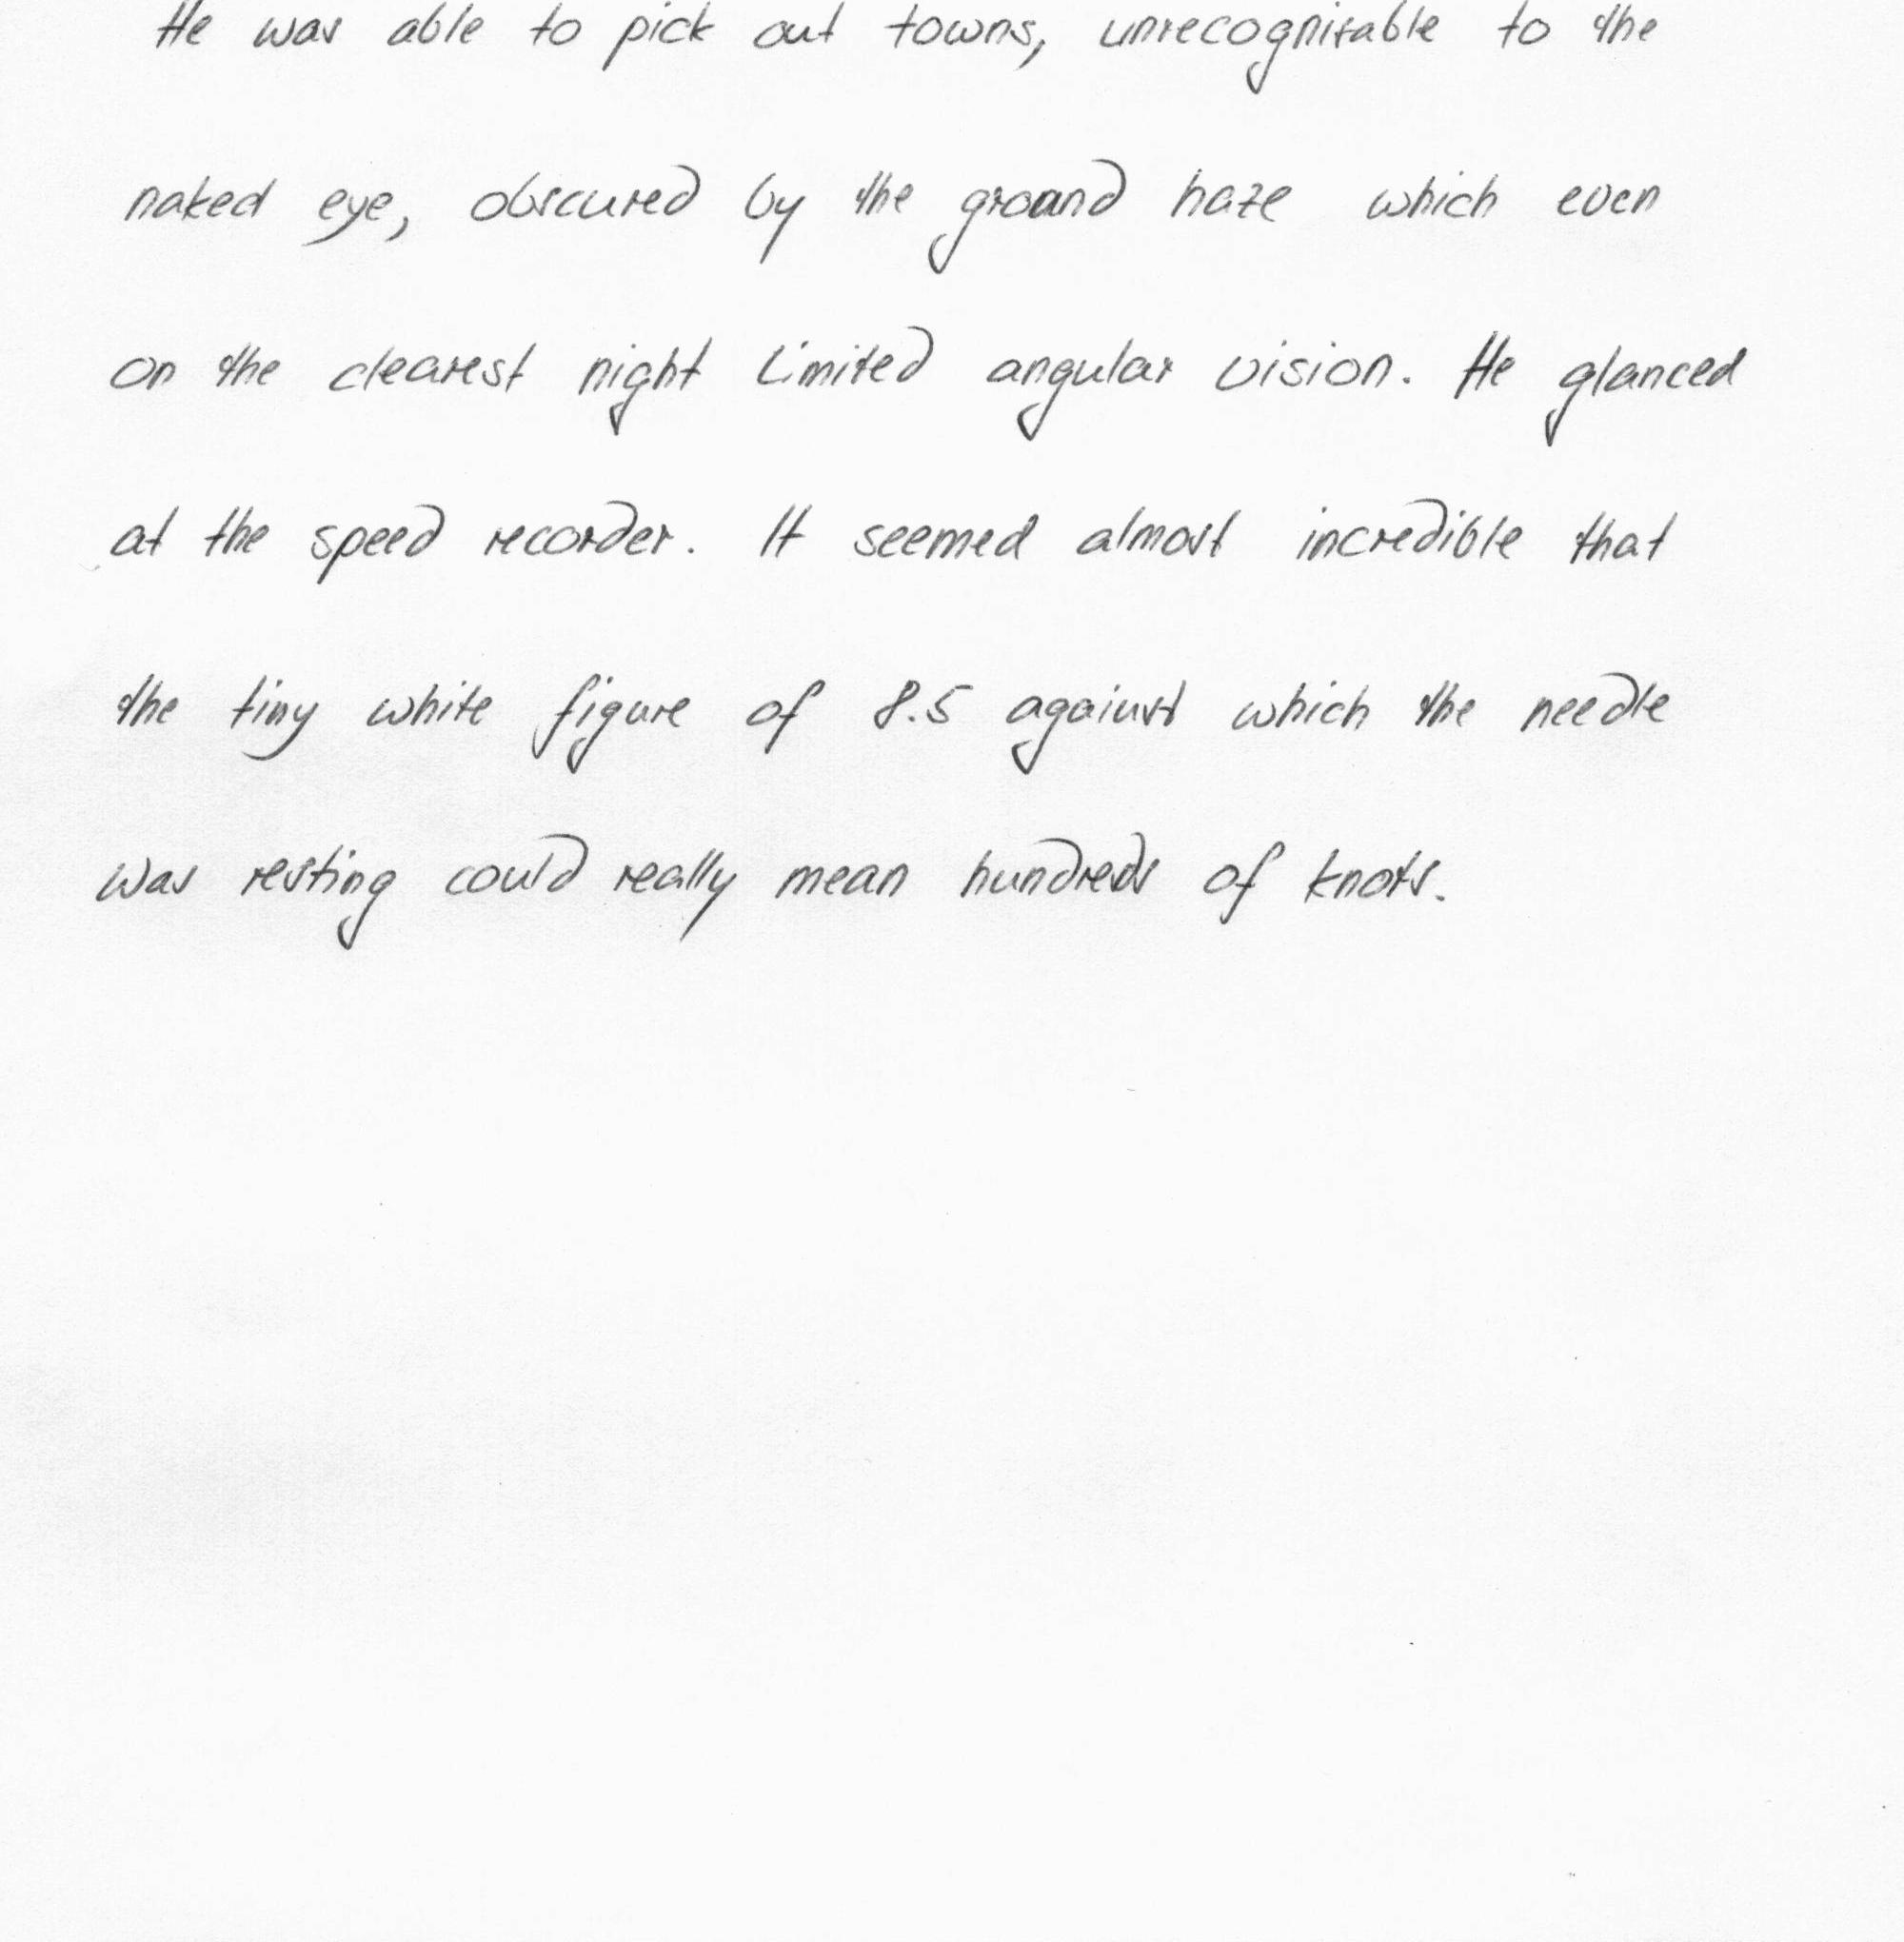 He was able to pick out towns, unrecognisable to the
naked eye, obscured by the ground haze which even
on the clearest night limited angular vision. He glanced
at the speed recorder. It seemed almost incredible that
the tiny white figure of 8.5 against which the needle
was resting could really mean hundreds of knots.